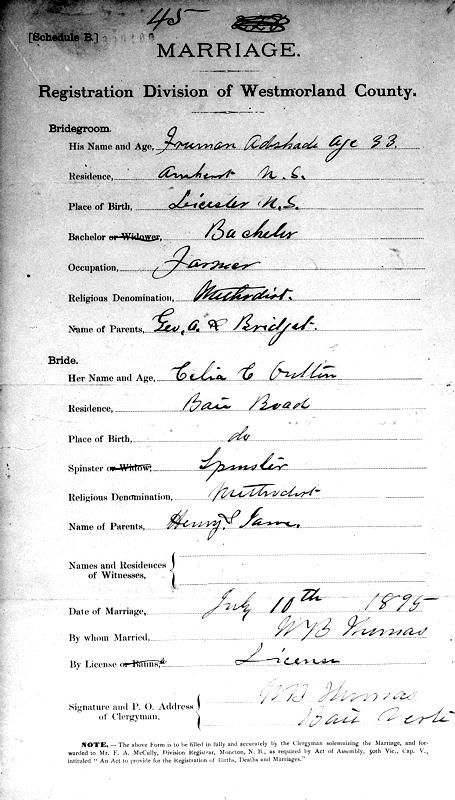 45
[Schedule B.]
MARRIAGE.
Registration Division of Westmorland County.
Bridegroom.
His Name and Age, Truman Adshade Age 33.
Residence, Amherst N.S.
Place of Birth, Leicester N.S.
Bachelor or Widower, Bachelor
Occupation, Farmer
Religious Denomination, Methodist.
Name of Parents, Geo. A. & Bridget.
Bride.
Her Name and Age, Celia C Oulton
Residence, Baie Road
Place of Birth, do
Spinster or Widow, Spinster
Religious Denomination, Methodist
Name of Parents, Henry & Jane.
Names and Residences
of Witnesses,
Date of Marriage, July 10th 1895
By whom Married, W B Thomas
By License or Banns, License
Signature and P. O. Address
of Clergyman.
W B Thomas
Baie Verte
NOTE. — The above Form is to be filled in fully and accurately by the Clergyman solemnizing the Marriage, and for-
warded to Mr. F. A. McCully, Division Registrar, Moncton, N. B., as required by Act of Assembly, 50th Vic., Cap. V.,
intituled "An Act to provide for the Registration of Births, Deaths and Marriages."